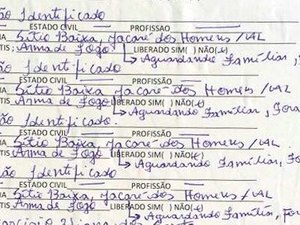 ão Identificado
ESTADO CIVIL PROFISSÃO
IA Sítio Baixa, Jacaré dos Homens/AL
TIS: Arma de Fogo LIBERADO SIM( ) NÃO( )
→ Aguardando Família,
ão Identificado
ESTADO CIVIL PROFISSÃO
IA Sítio Baixa, Jacaré dos Homens/AL
TIS: Arma de Fogo LIBERADO SIM( ) NÃO( )
→ Aguardando Família, Fora
ão Identificado.
ESTADO CIVIL PROFISSÃO
IA Sítio Baixa, Jacaré dos Homens/AL
TIS: Arma de Fogo LIBERADO SIM( ) NÃO( )
→ Aguardando Família, Fo
ão Identificado
ESTADO CIVIL PROFISSÃO
IA Sítio Baixa, Jacaré dos Homens/AL
TIS: Arma de Fogo LIBERADO SIM( ) NÃO( )
→ Aguardando Família, For